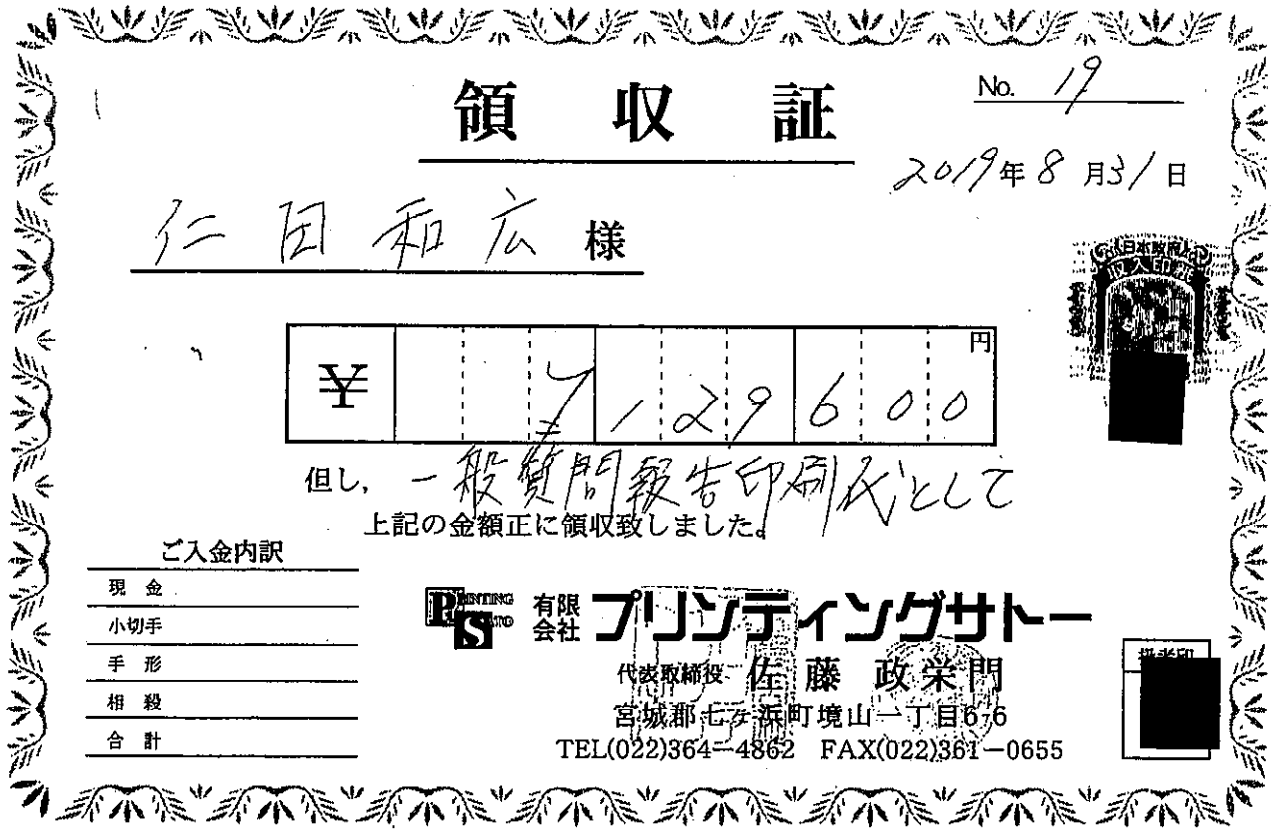 領収証
No. 19
2019年8月31日
仁田和広 様
¥129600円
但し、一般質問報告印刷代として
上記の金額正に領収致しました。
ご入金内訳
現金
小切手
手形
相殺
合計
PRINTING
SATO
有限会社 プリンティングサトー
代表取締役 佐藤 政栄門
宮城郡七ヶ浜町境山一丁目6-6
TEL(022)364-4862 FAX(022)361-0655
日本政府
収入印紙